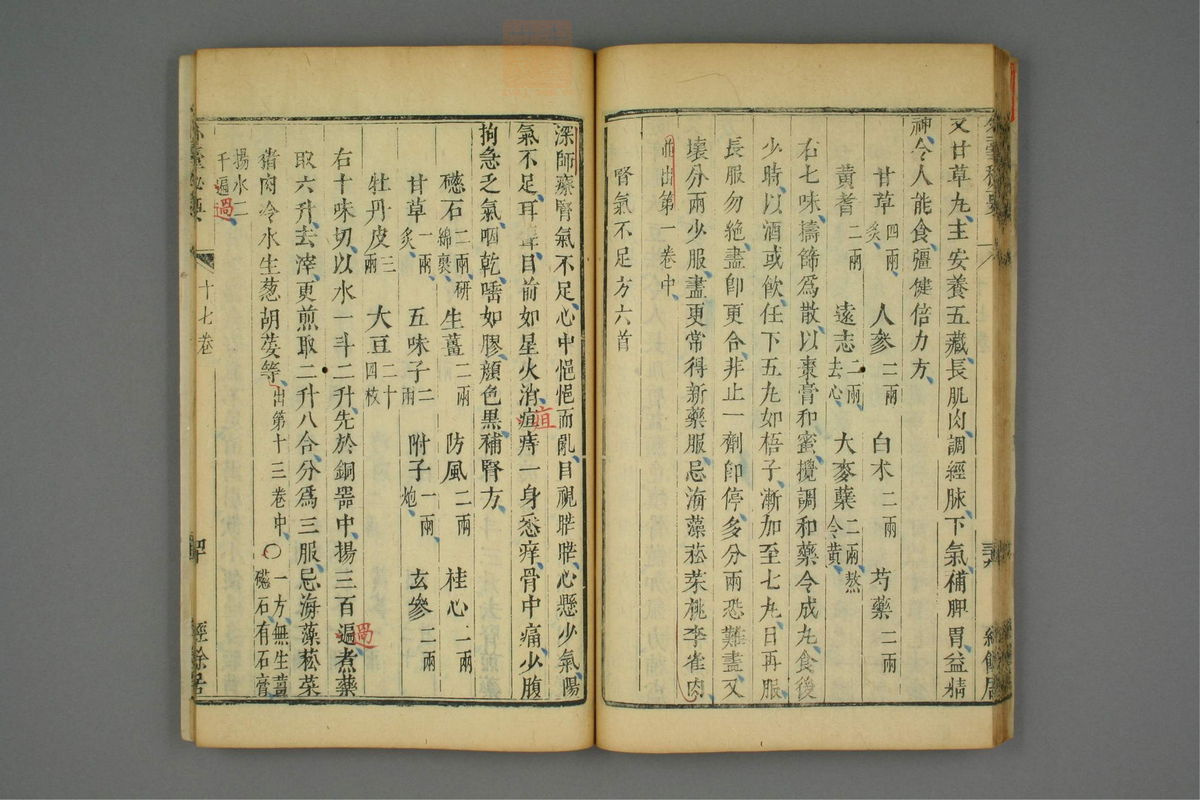 又甘草丸主安養五藏長肌肉調經脉下氣補脾胃益精
神令人能食彊健倍力方
甘草四兩炙 人參二兩 白朮二兩 芍藥二兩
黃耆二兩 遠志二兩去心 大麥蘖二兩熬令黃
右七味擣篩爲散以棗膏和蜜攪調和藥令成丸食後
少時以酒或飲任下五丸如梧子漸加至七丸日再服
長服勿絶盡卽更合非止一劑卽停多分兩恐難盡又
壞分兩少服盡更常得新藥服忌海藻菘菜桃李雀肉
並出第一卷中
腎氣不足方六首
深師療腎氣不足心中悒悒而亂目視䀮䀮心懸少氣陽
氣不足耳聾目前如星火消疽痔一身悉痒骨中痛少腹
疽
拘急乏氣咽乾唾如膠顔色黑補腎方
礠石二兩研綿裹 生薑二兩 防風二兩 桂心二兩
甘草一兩炙 五味子二兩 附子一兩炮 玄參二兩
牡丹皮三兩 大豆二十四枚
右十味切以水一斗二升先於銅器中揚三百遍煮藥
過
取六升去滓更煎取二升八合分爲三服忌海藻菘菜
豬肉冷水生葱胡荽等出第十三卷中○一方無生薑礠石有石膏
揚水二千遍
過
十七卷
經餘居